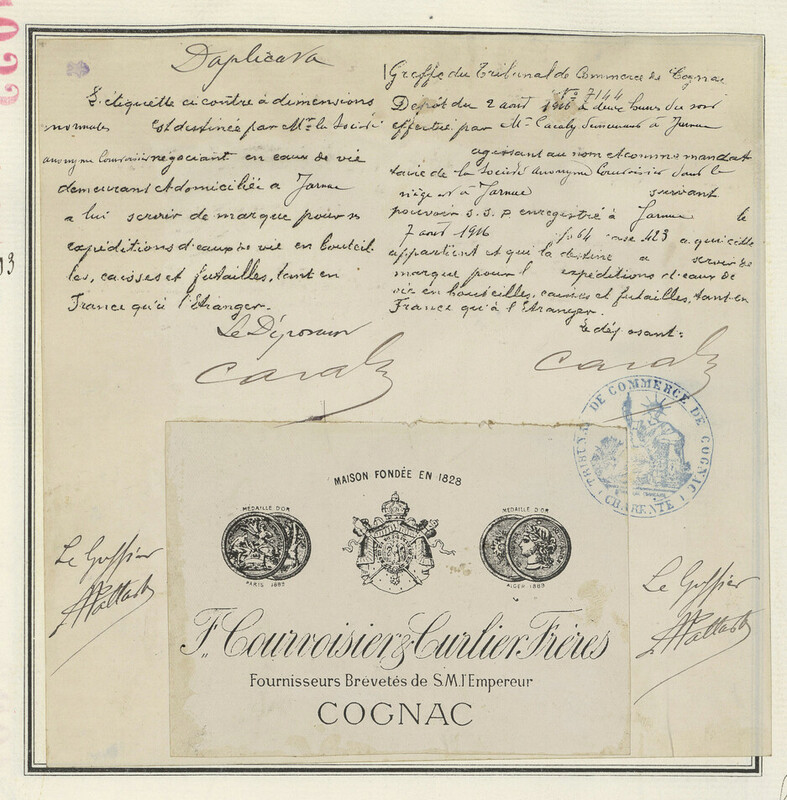 Duplicata
L'étiquette ci contre à dimensions
normales Est destinée par Mr la Société
anonyme Courvoisier négociant en eaux de vie
demeurant et domiciliée à Jarnac
a lui servir de marque pour ses
expéditions d'eaux de vie en bouteil
les, caisses et futailles, tant en
France qu'à l'étranger.
Le Déposant
Greffe du Tribunal de Commerce de Cognac
No 7144
Dépôt du 2 aout 1916 à deux heures du soir
effectué par Mr demeurant à Jarnac
agissant au nom et comme mandat
taire de la Société anonyme Courvoisier dont le
siège est à Jarnac suivant
pouvoir S.S.P enregistré à Jarnac le
7 aout 1916 fo 64 case 423 a qui cette
appartient et qui la destine a servir de
marque pour l expéditions d'eaux de
vie en bouteilles, caisses et futailles, tant en
France qu'à l'étranger.
Le déposant:
TRIBUNAL DE COMMERCE DE COGNAC
(CHARENTE)
MAISON FONDÉE EN 1828
MÉDAILLE D'OR
PARIS 1889
MÉDAILLE D'OR
ALGER 1889
F. Courvoisier & Curlier Frères
Fournisseurs Brevetés de S.M. l'Empereur
COGNAC
Le Greffier
Le Greffier